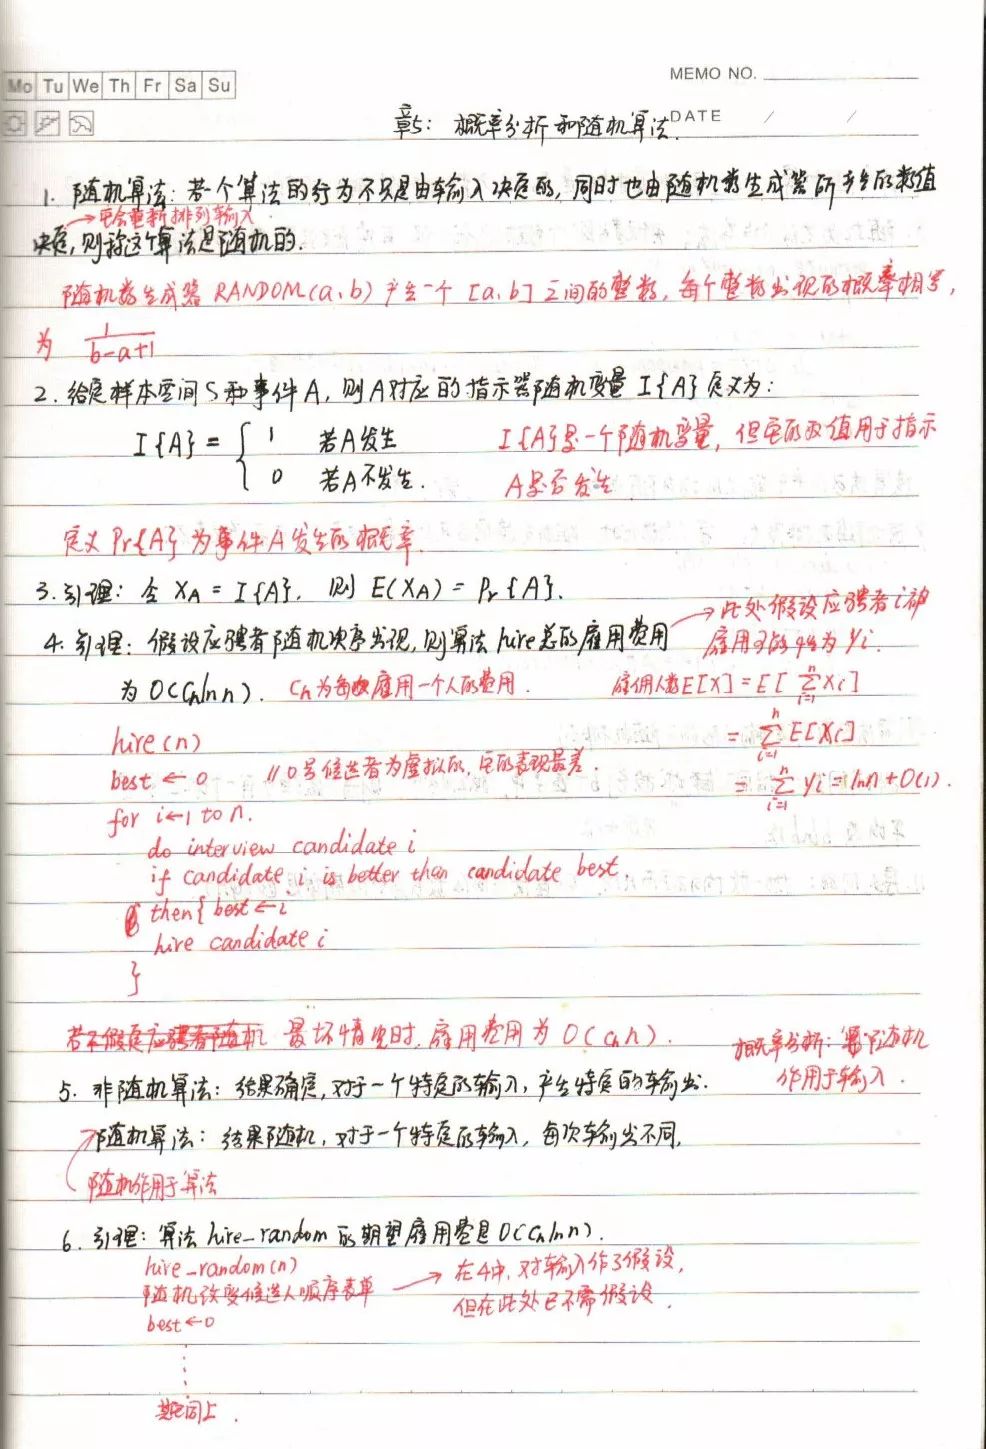 Mo Tu We Th Fr Sa Su
MEMO NO.
DATE / /
章5: 概率分析和随机算法.
1. 随机算法: 若一个算法的行为不只是由输入决定的, 同时也由随机数生成器所产生的数值
→它会重新排列输入
决定, 则称这个算法是随机的.
随机数生成器 RANDOM(a,b) 产生一个 [a,b] 之间的整数, 每个整数出现的概率相等,
为 1/(b-a+1)
2. 给定样本空间 S 和事件 A, 则 A 对应的指示器随机变量 I{A} 定义为:
I{A} = { 1 若A发生
0 若A不发生.
I{A}是一个随机变量, 但它的取值用于指示
A是否发生
定义 Pr{A} 为事件 A 发生的概率.
3. 引理: 令 XA = I{A}, 则 E(XA) = Pr{A}.
4. 引理: 假设应聘者随机次序出现, 则算法 hire 总的雇用费用
→此处假设应聘者 i 被
雇用的为 yi.
为 O(Cn ln n). Cn为每次雇用一个人的费用.
雇佣人数E[X] = E[ Σ(i=1..n) Xi]
= Σ(i=1..n) E[Xi]
= Σ(i=1..n) yi = ln n + O(1).
hire(n)
best ← 0 // 0号候选者为虚拟的, 它的表现最差.
for i←1 to n.
do interview candidate i
if candidate i is better than candidate best.
then{ best ← i
hire candidate i
}
若不假定应聘者随机 最坏情况时, 雇用费用为 O(Cn n).
概率分析: 随机
作用于输入.
5. 非随机算法: 结果确定, 对于一个特定的输入, 产生特定的输出.
随机算法: 结果随机, 对于一个特定的输入, 每次输出不同.
随机作用于算法
6. 引理: 算法 hire_random 的期望雇用费是 O(Cn ln n).
hire_random(n)
随机改变候选人顺序表单
→ 在4中, 对输入作了假设,
但在此处已不需假设.
best ← 0
⋮
同上.